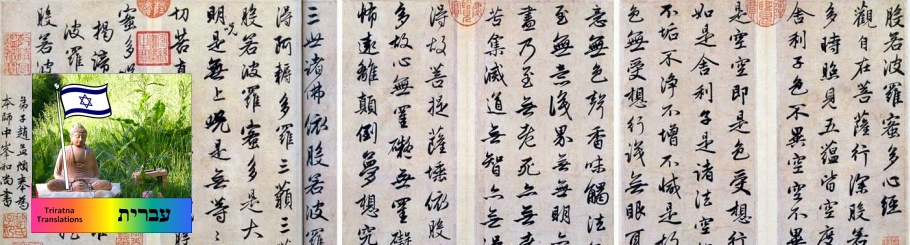 般若波羅蜜多心經
觀自在菩薩行深般若
多時照見五蘊皆空度
舍利子色不異空空不
是空即是色受想行
如是舍利子是諸法空
不垢不淨不增不減是故
色無受想行識無眼
意無色聲香味觸法
至無意識界無無明
盡乃至無老死亦無
苦集滅道無智亦無
得故菩提薩埵依般
多故心無罣礙無罣礙
怖遠離顛倒夢想究
三世諸佛依般若波羅
得阿耨多羅三藐三
般若波羅蜜多是大
明呪是無上呪是無等
切苦真
蜜多
揭諦
波羅
般若
弟子趙孟頫奉為
本師中峯和尚書
Triratna
Translations
עברית